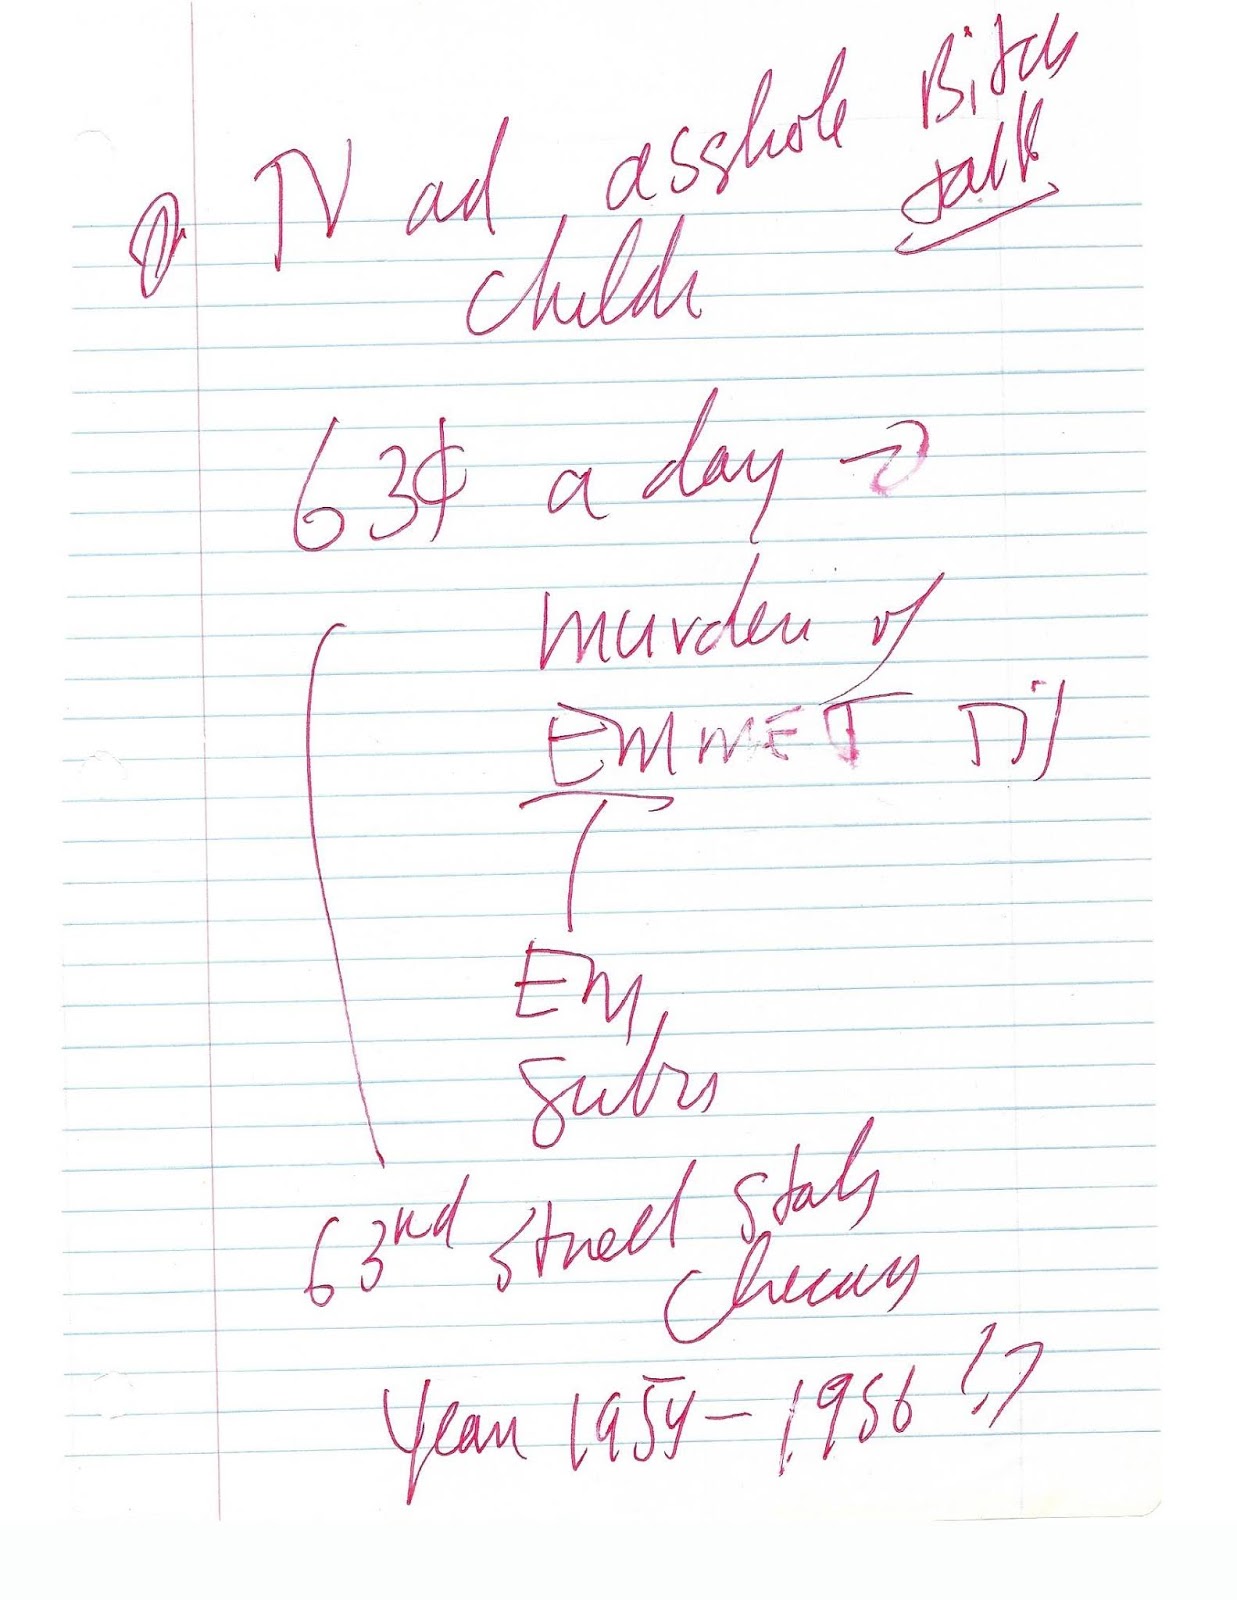 TV ad asshole Bitch
talk
childr
63¢ a day →
murder of
EMMET Till
EM
subs
63rd street stals
Year 1954 - 1956 !?